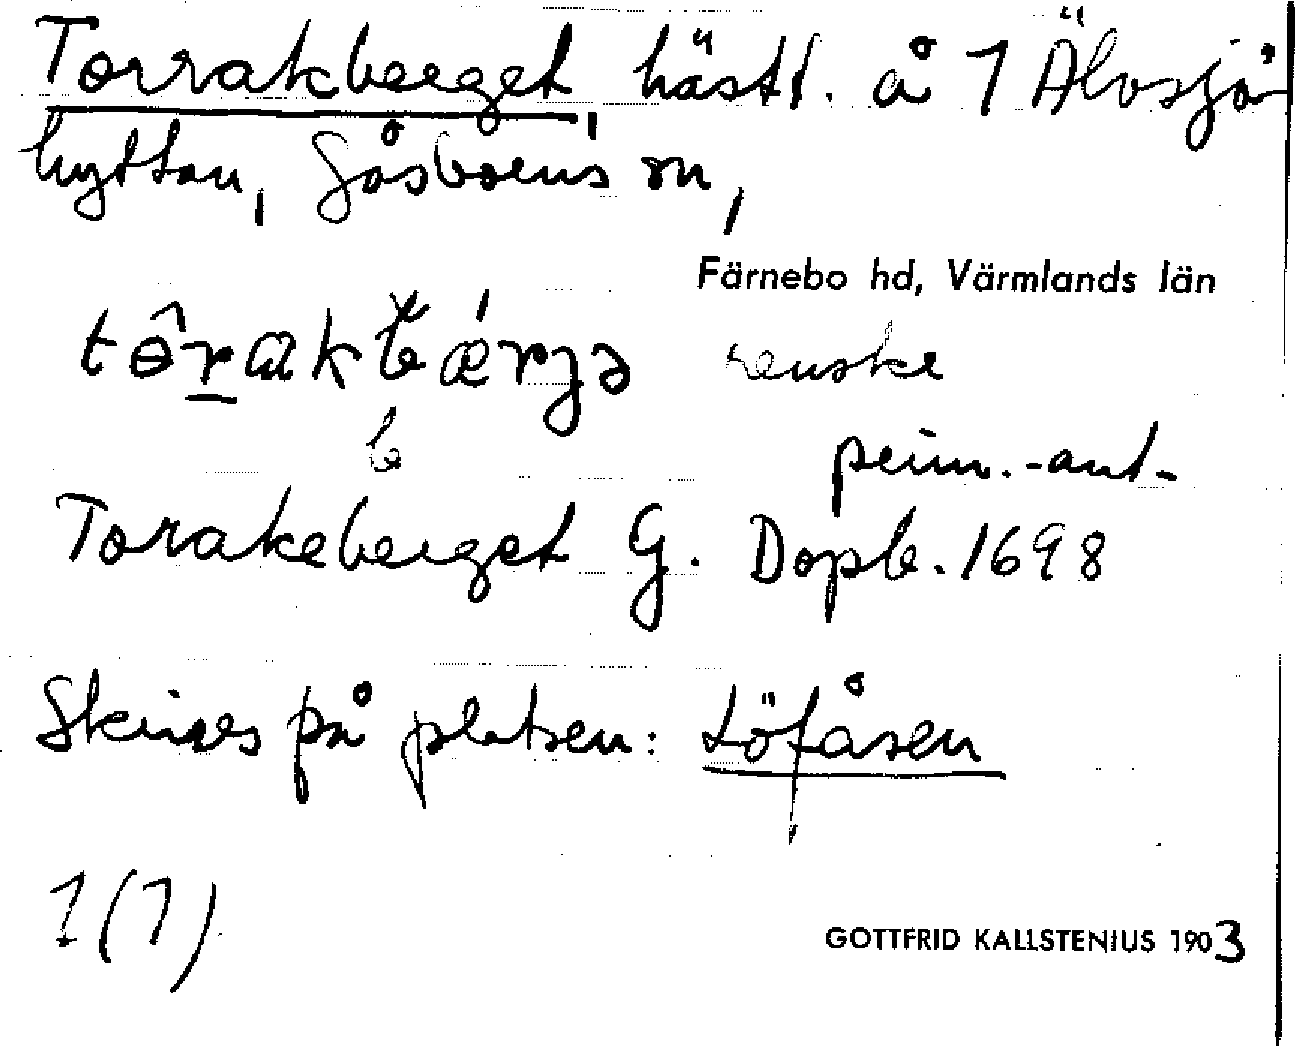 Torrakberget, hästt. å 1 Älvsjö-
hyttan, Gåsborns sn,
Färnebo hd, Värmlands län
tôrakbǽrjə
b
penn. -ant-
Torakeberget G. Dopb. 1698
Skrives på platsen: Löfåsen
1(1)
GOTTFRID KALLSTENIUS 1903